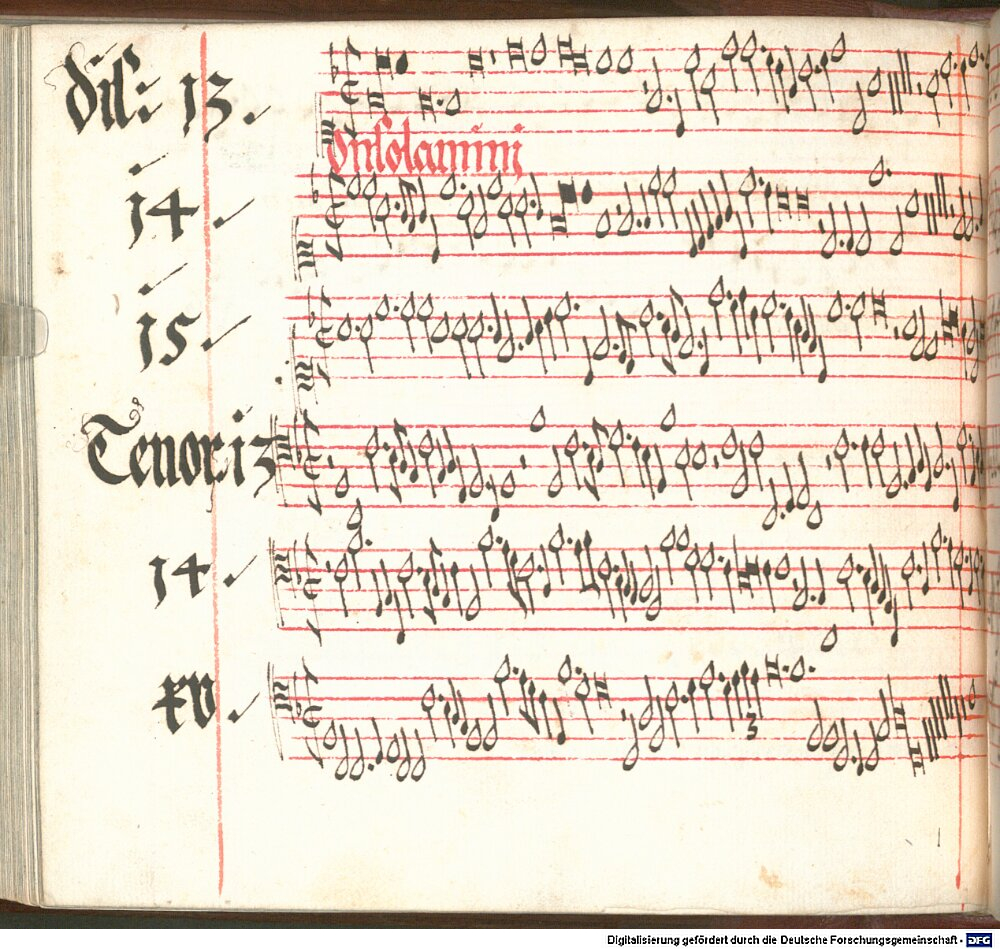 Dis: 13.
Consolamini
14.
15.
Tenor. 13
14.
xv.
3
Digitalisierung gefördert durch die Deutsche Forschungsgemeinschaft - DFG